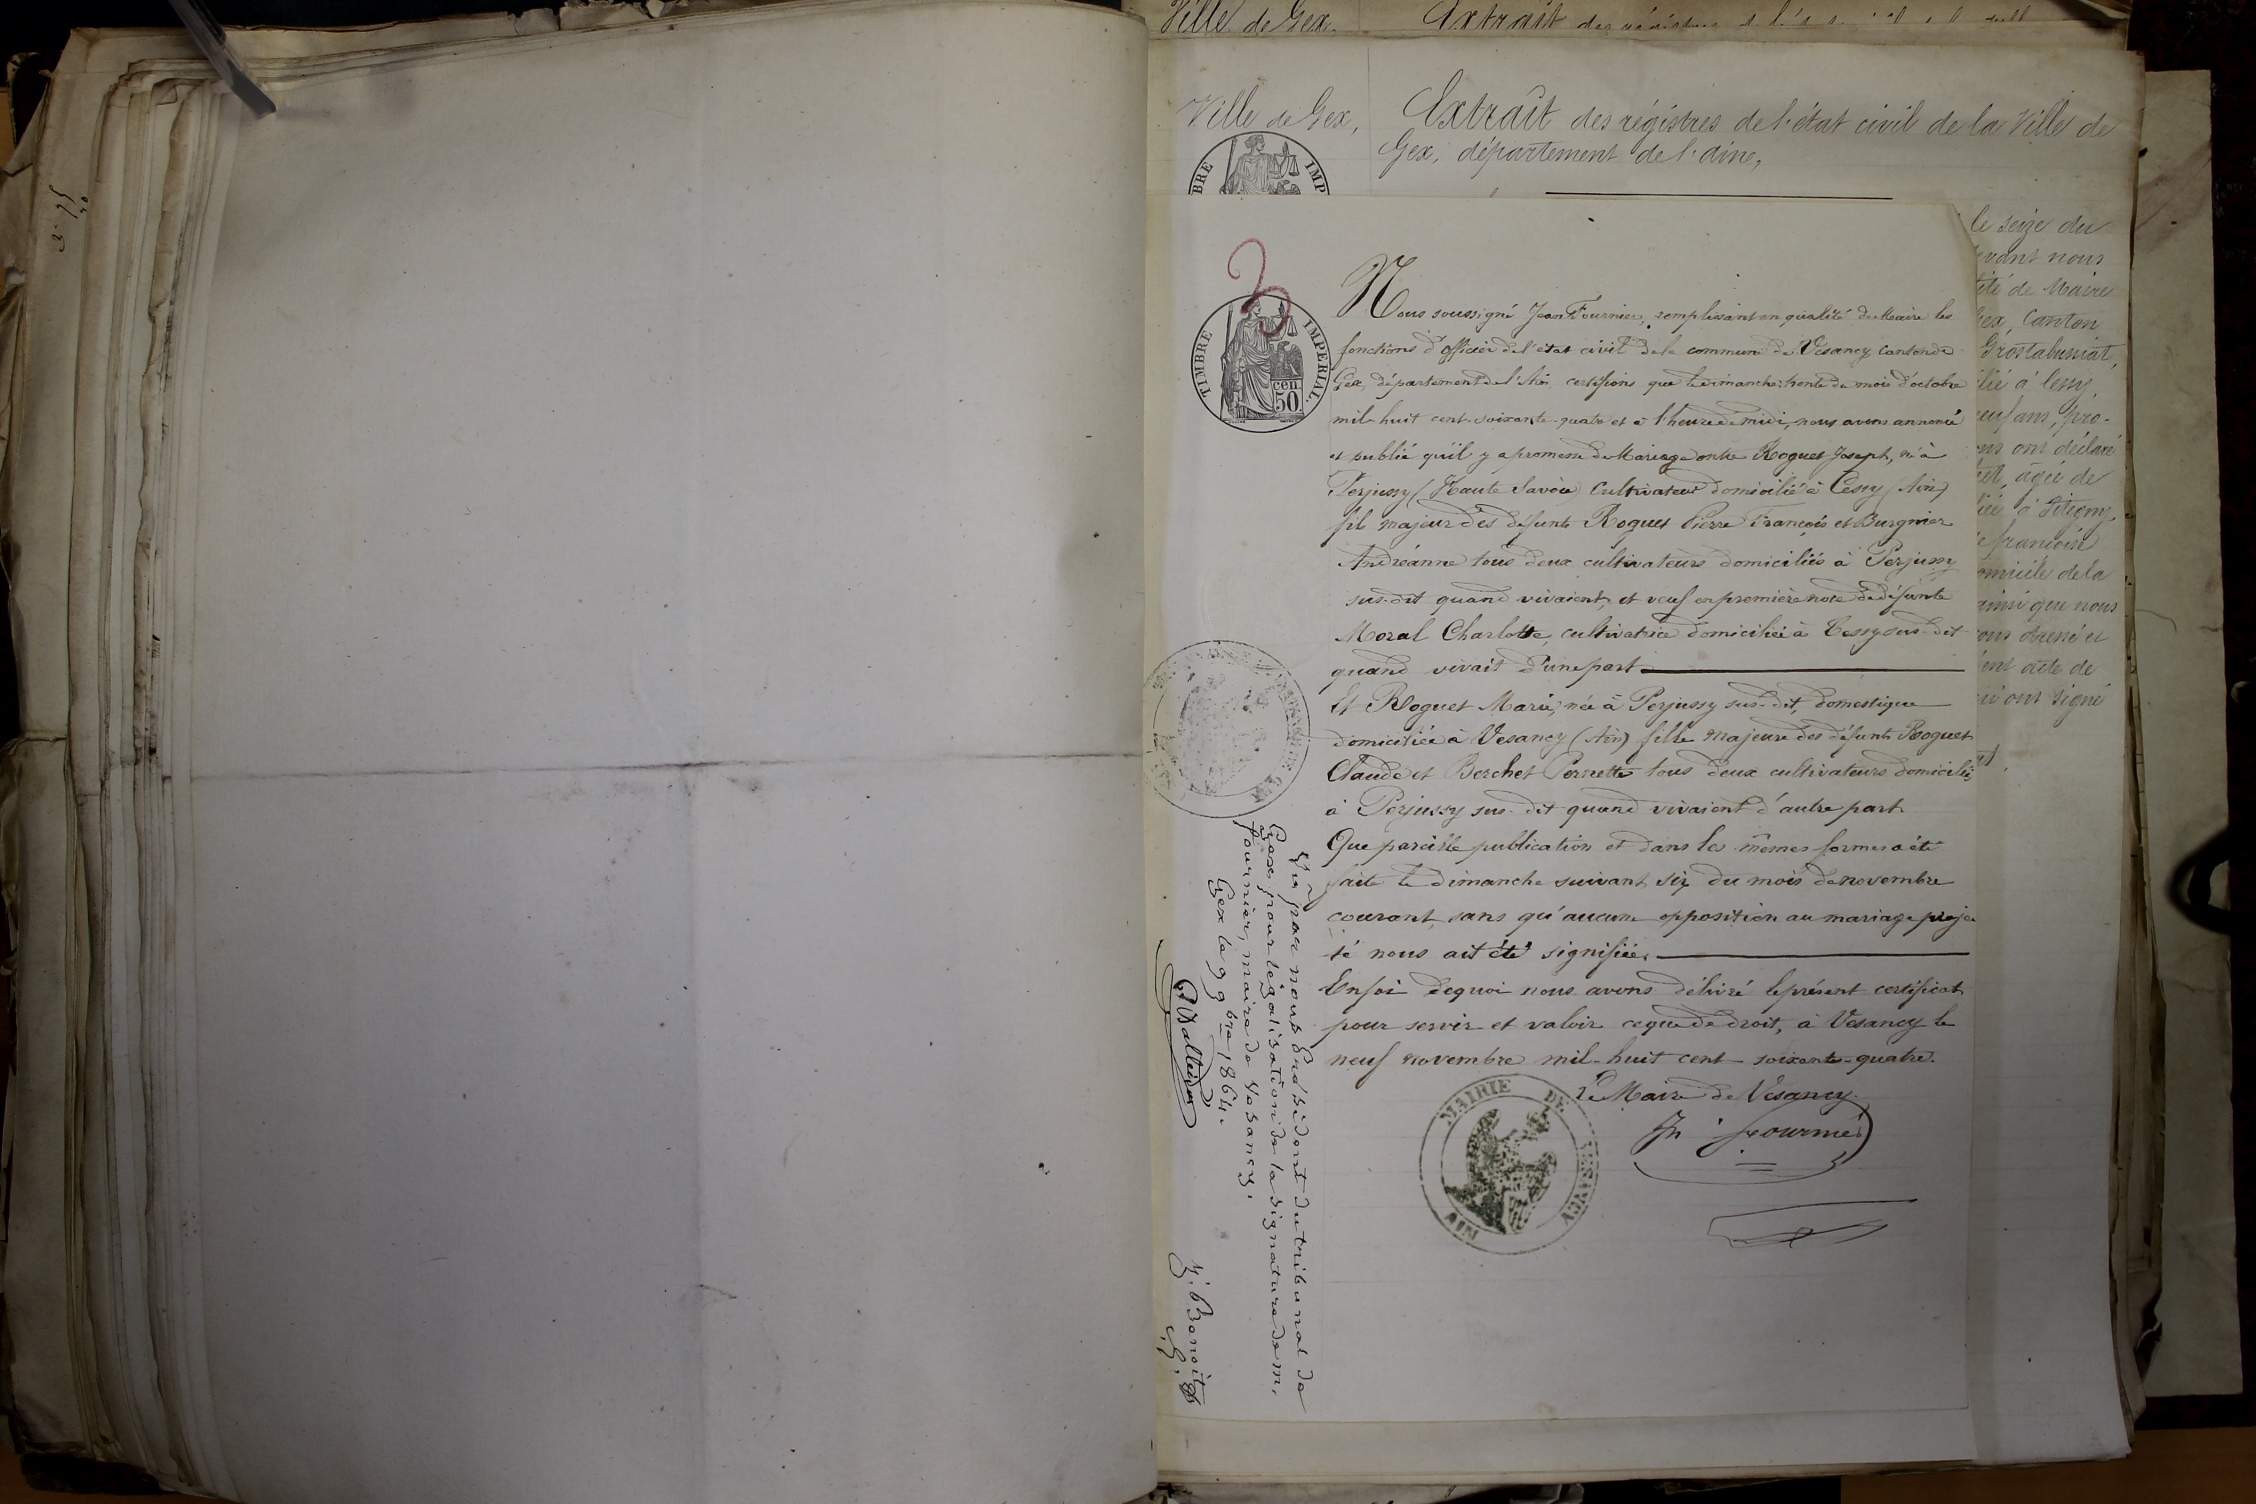 Ville de Gex. Extrait des
Ville de Gex, Extrait des régistres de l'état civil de la Ville de
Gex, département de l'Ain,
BRE IMP
le seize du
vant nous
ité de Maire
Gex, Canton
Grostabussiat,
lié à Cessy,
neuf ans, pro-
ons ont déclaré
âgée de
françoise
omicile de la
ainsi que nous
ent acte de
ont signé
3
TIMBRE IMPERIAL
50 cen.
Nous soussigné Jean Fournier, remplissant en qualité de Maire les
fonctions d'officier de l'état civil de la commune de Vésancy canton de
Gex, département de l'Ain certifions que le dimanche trente du mois d'octobre
mil-huit cent-soixante-quatre et à l'heure de midi, nous avons annoncé
et publié qu'il y a promesse de Mariage entre Roguet Joseph, né à
Perjussy (Haute Savoie) Cultivateur domicilié à Cessy (Ain)
fil majeur des défunts Roguet Pierre François et Burgnier
Andréanne tous deux cultivateurs domiciliés à Perjussy
sus-dit quand vivaient, et veuf en première noce de défunte
Moral Charlotte, cultivatrice domiciliée à Cessy sus-dit
quand vivait d'une part
Et Roguet Marie, née à Perjussy sus-dit, domestique
domiciliée à Vesancy (Ain) fille majeure des défunts Roguet
Claude et Berchet Pernette tous deux cultivateurs domiciliés
à Perjussy sus-dit quand vivaient d'autre part
Que pareille publication et dans les mêmes formes a été
faite le dimanche suivant six du mois de novembre
courant, sans qu'aucune opposition au mariage proje
té nous ait été signifiée.
En foi de quoi nous avons délivré le présent certificat
pour servir et valoir ce que de droit, à Vesancy le
neuf novembre mil-huit cent soixante-quatre.
Le Maire de Vésancy
Jn Fournier
MAIRIE DE VESANCY
AIN
Vu par nous Président du tribunal de
Gex, pour légalisation de la signature de m.
fournier, maire de Vesancy.
Gex le 9 9bre 1864.
f. Benoit